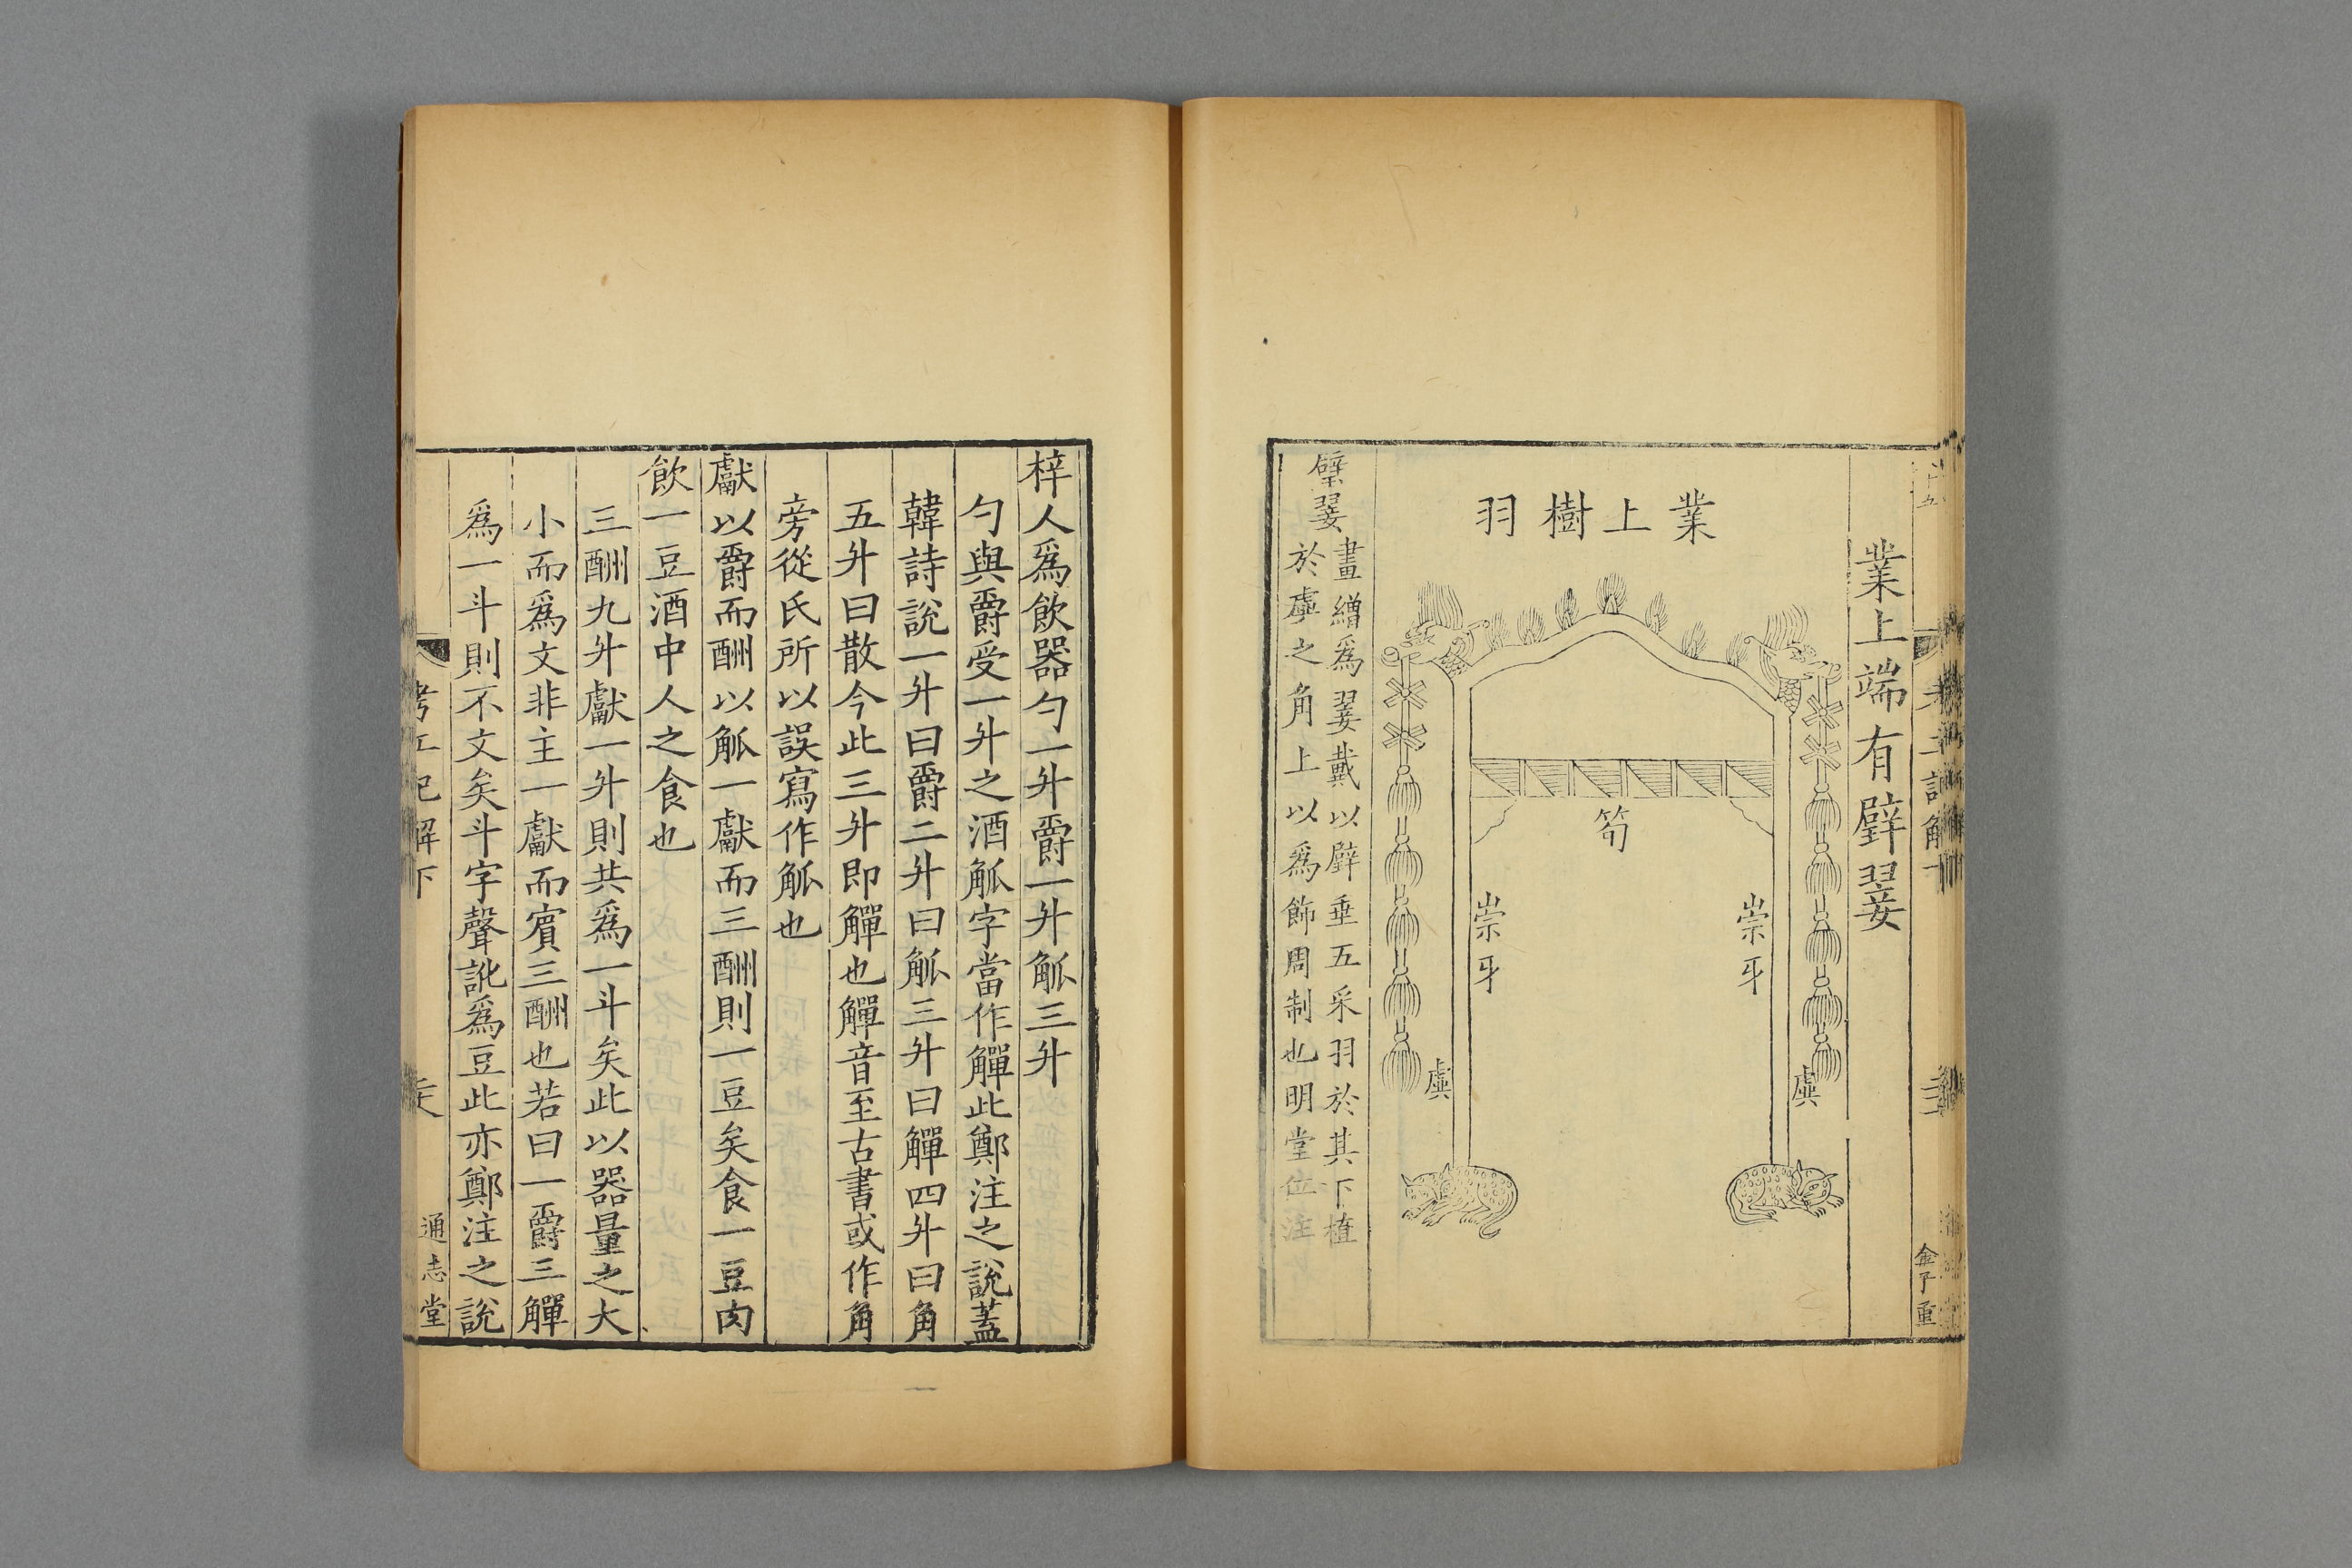 業上端有璧翣
業上樹羽
筍
崇牙
崇牙
虡
虡
璧翣畫繒爲翣戴以璧垂五采羽於其下植
於虡之角上以爲飾周制也明堂位注
金子重
梓人爲飲器勺一升爵一升觚三升
勺與爵受一升之酒觚字當作觶此鄭注之說蓋
韓詩說一升曰爵二升曰觚三升曰觶四升曰角
五升曰散今此三升即觶也觶音至古書或作角
旁從氏所以誤寫作觚也
獻以爵而酬以觚一獻而三酬則一豆矣食一豆肉
飲一豆酒中人之食也
三酬九升獻一升則共爲一斗矣此以器量之大
小而爲文非主一獻而賓三酬也若曰一爵三觶
爲一斗則不文矣斗字聲訛爲豆此亦鄭注之說
考工記解下
通志堂